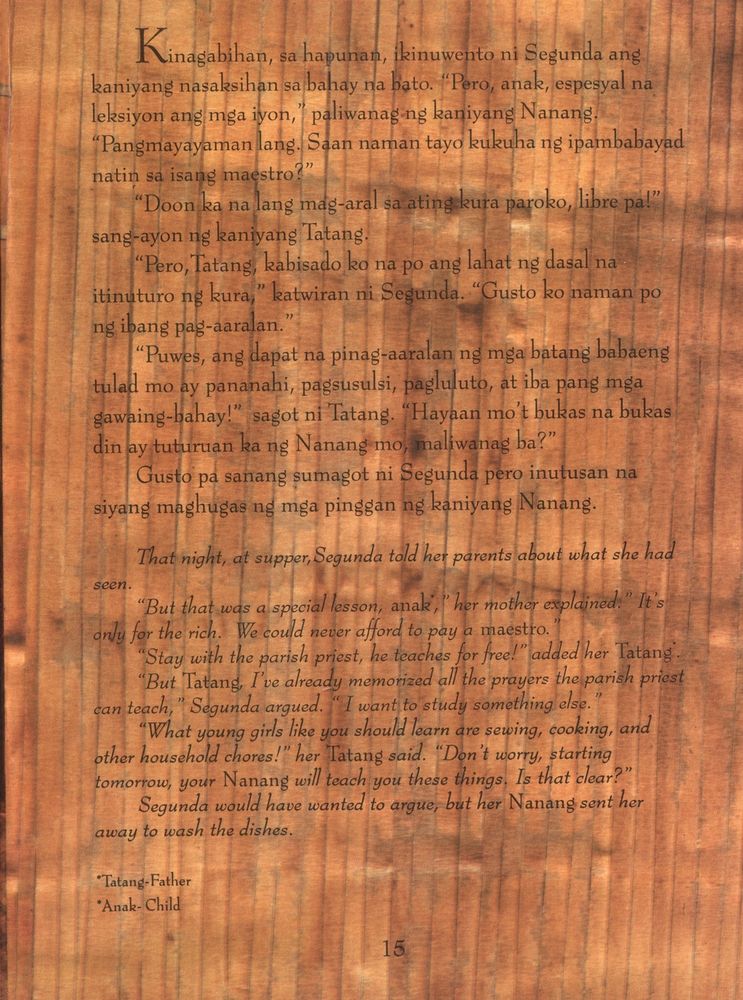 Kinagabihan, sa hapunan, ikinuwento ni Segunda ang
kaniyang nasaksihan sa bahay na bato. “Pero, anak, espesyal na
leksiyon ang mga iyon,” paliwanag ng kaniyang Nanang.
“Pangmayayaman lang. Saan naman tayo kukuha ng ipambabayad
natin sa isang maestro?”
“Doon ka na lang mag-aral sa ating kura paroko, libre pa!”
sang-ayon ng kaniyang Tatang.
“Pero, Tatang, kabisado ko na po ang lahat ng dasal na
itinuturo ng kura,” katwiran ni Segunda. “Gusto ko naman po
ng ibang pag-aaralan.”
“Puwes, ang dapat na pinag-aaralan ng mga batang babaeng
tulad mo ay pananahi, pagsusulsi, pagluluto, at iba pang mga
gawaing-bahay!” sagot ni Tatang. “Hayaan mo’t bukas na bukas
din ay tuturuan ka ng Nanang mo, maliwanag ba?”
Gusto pa sanang sumagot ni Segunda pero inutusan na
siyang maghugas ng mga pinggan ng kaniyang Nanang.
That night, at supper, Segunda told her parents about what she had
seen.
“But that was a special lesson, anak*,” her mother explained.” It’s
only for the rich. We could never afford to pay a maestro.”
“Stay with the parish priest, he teaches for free!” added her Tatang*.
“But Tatang, I’ve already memorized all the prayers the parish priest
can teach,” Segunda argued. “ I want to study something else.”
“What young girls like you should learn are sewing, cooking, and
other household chores!” her Tatang said. “Don’t worry, starting
tomorrow, your Nanang will teach you these things. Is that clear?”
Segunda would have wanted to argue, but her Nanang sent her
away to wash the dishes.
*Tatang-Father
*Anak- Child
15